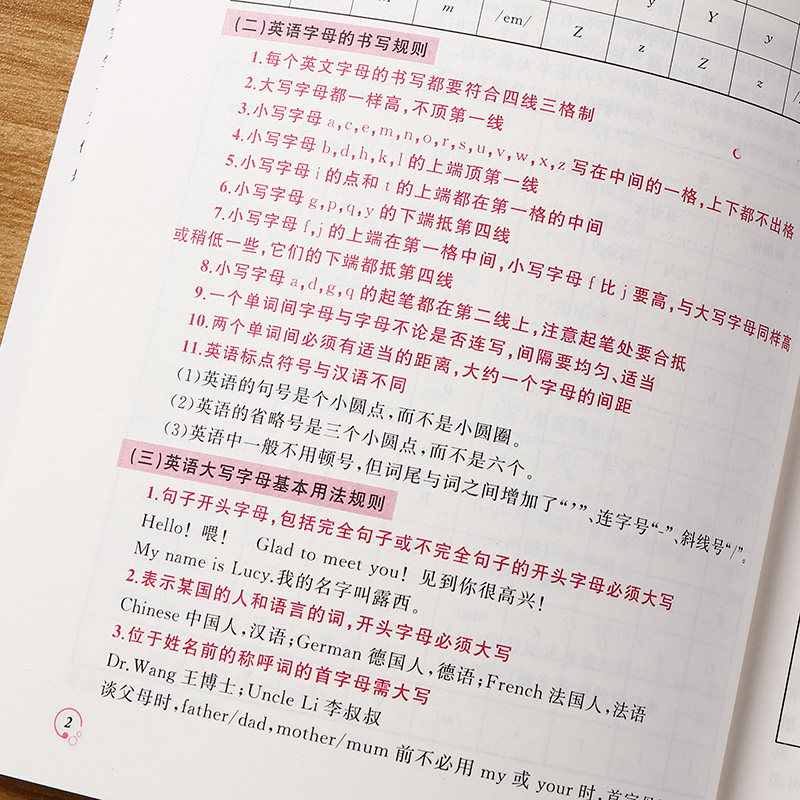 m /em/ Z z Y Z y z
(二)英语字母的书写规则
1.每个英文字母的书写都要符合四线三格制
2.大写字母都一样高,不顶第一线
3.小写字母a,c,e,m,n,o,r,s,u,v,w,x,z写在中间的一格,上下都不出格
4.小写字母b,d,h,k,l的上端顶第一线
5.小写字母i的点和t的上端都在第一格的中间
6.小写字母g,p,q,y的下端抵第四线
7.小写字母f,j的上端在第一格中间,小写字母f比j要高,与大写字母同样高
或稍低一些,它们的下端都抵第四线
8.小写字母a,d,g,q的起笔都在第二线上,注意起笔处要合抵
9.一个单词间字母与字母不论是否连写,间隔要均匀、适当
10.两个单词间必须有适当的距离,大约一个字母的间距
11.英语标点符号与汉语不同
(1)英语的句号是个小圆点,而不是小圆圈。
(2)英语的省略号是三个小圆点,而不是六个。
(3)英语中一般不用顿号,但词尾与词之间增加了“’”、连字号“-”、斜线号“/”。
(三)英语大写字母基本用法规则
1.句子开头字母,包括完全句子或不完全句子的开头字母必须大写
Hello! 喂! Glad to meet you! 见到你很高兴!
My name is Lucy.我的名字叫露西。
2.表示某国的人和语言的词,开头字母必须大写
Chinese 中国人,汉语;German 德国人,德语;French 法国人,法语
3.位于姓名前的称呼词的首字母需大写
Dr.Wang 王博士;Uncle Li 李叔叔
谈父母时,father/dad,mother/mum 前不必用 my 或 your 时,首字
2